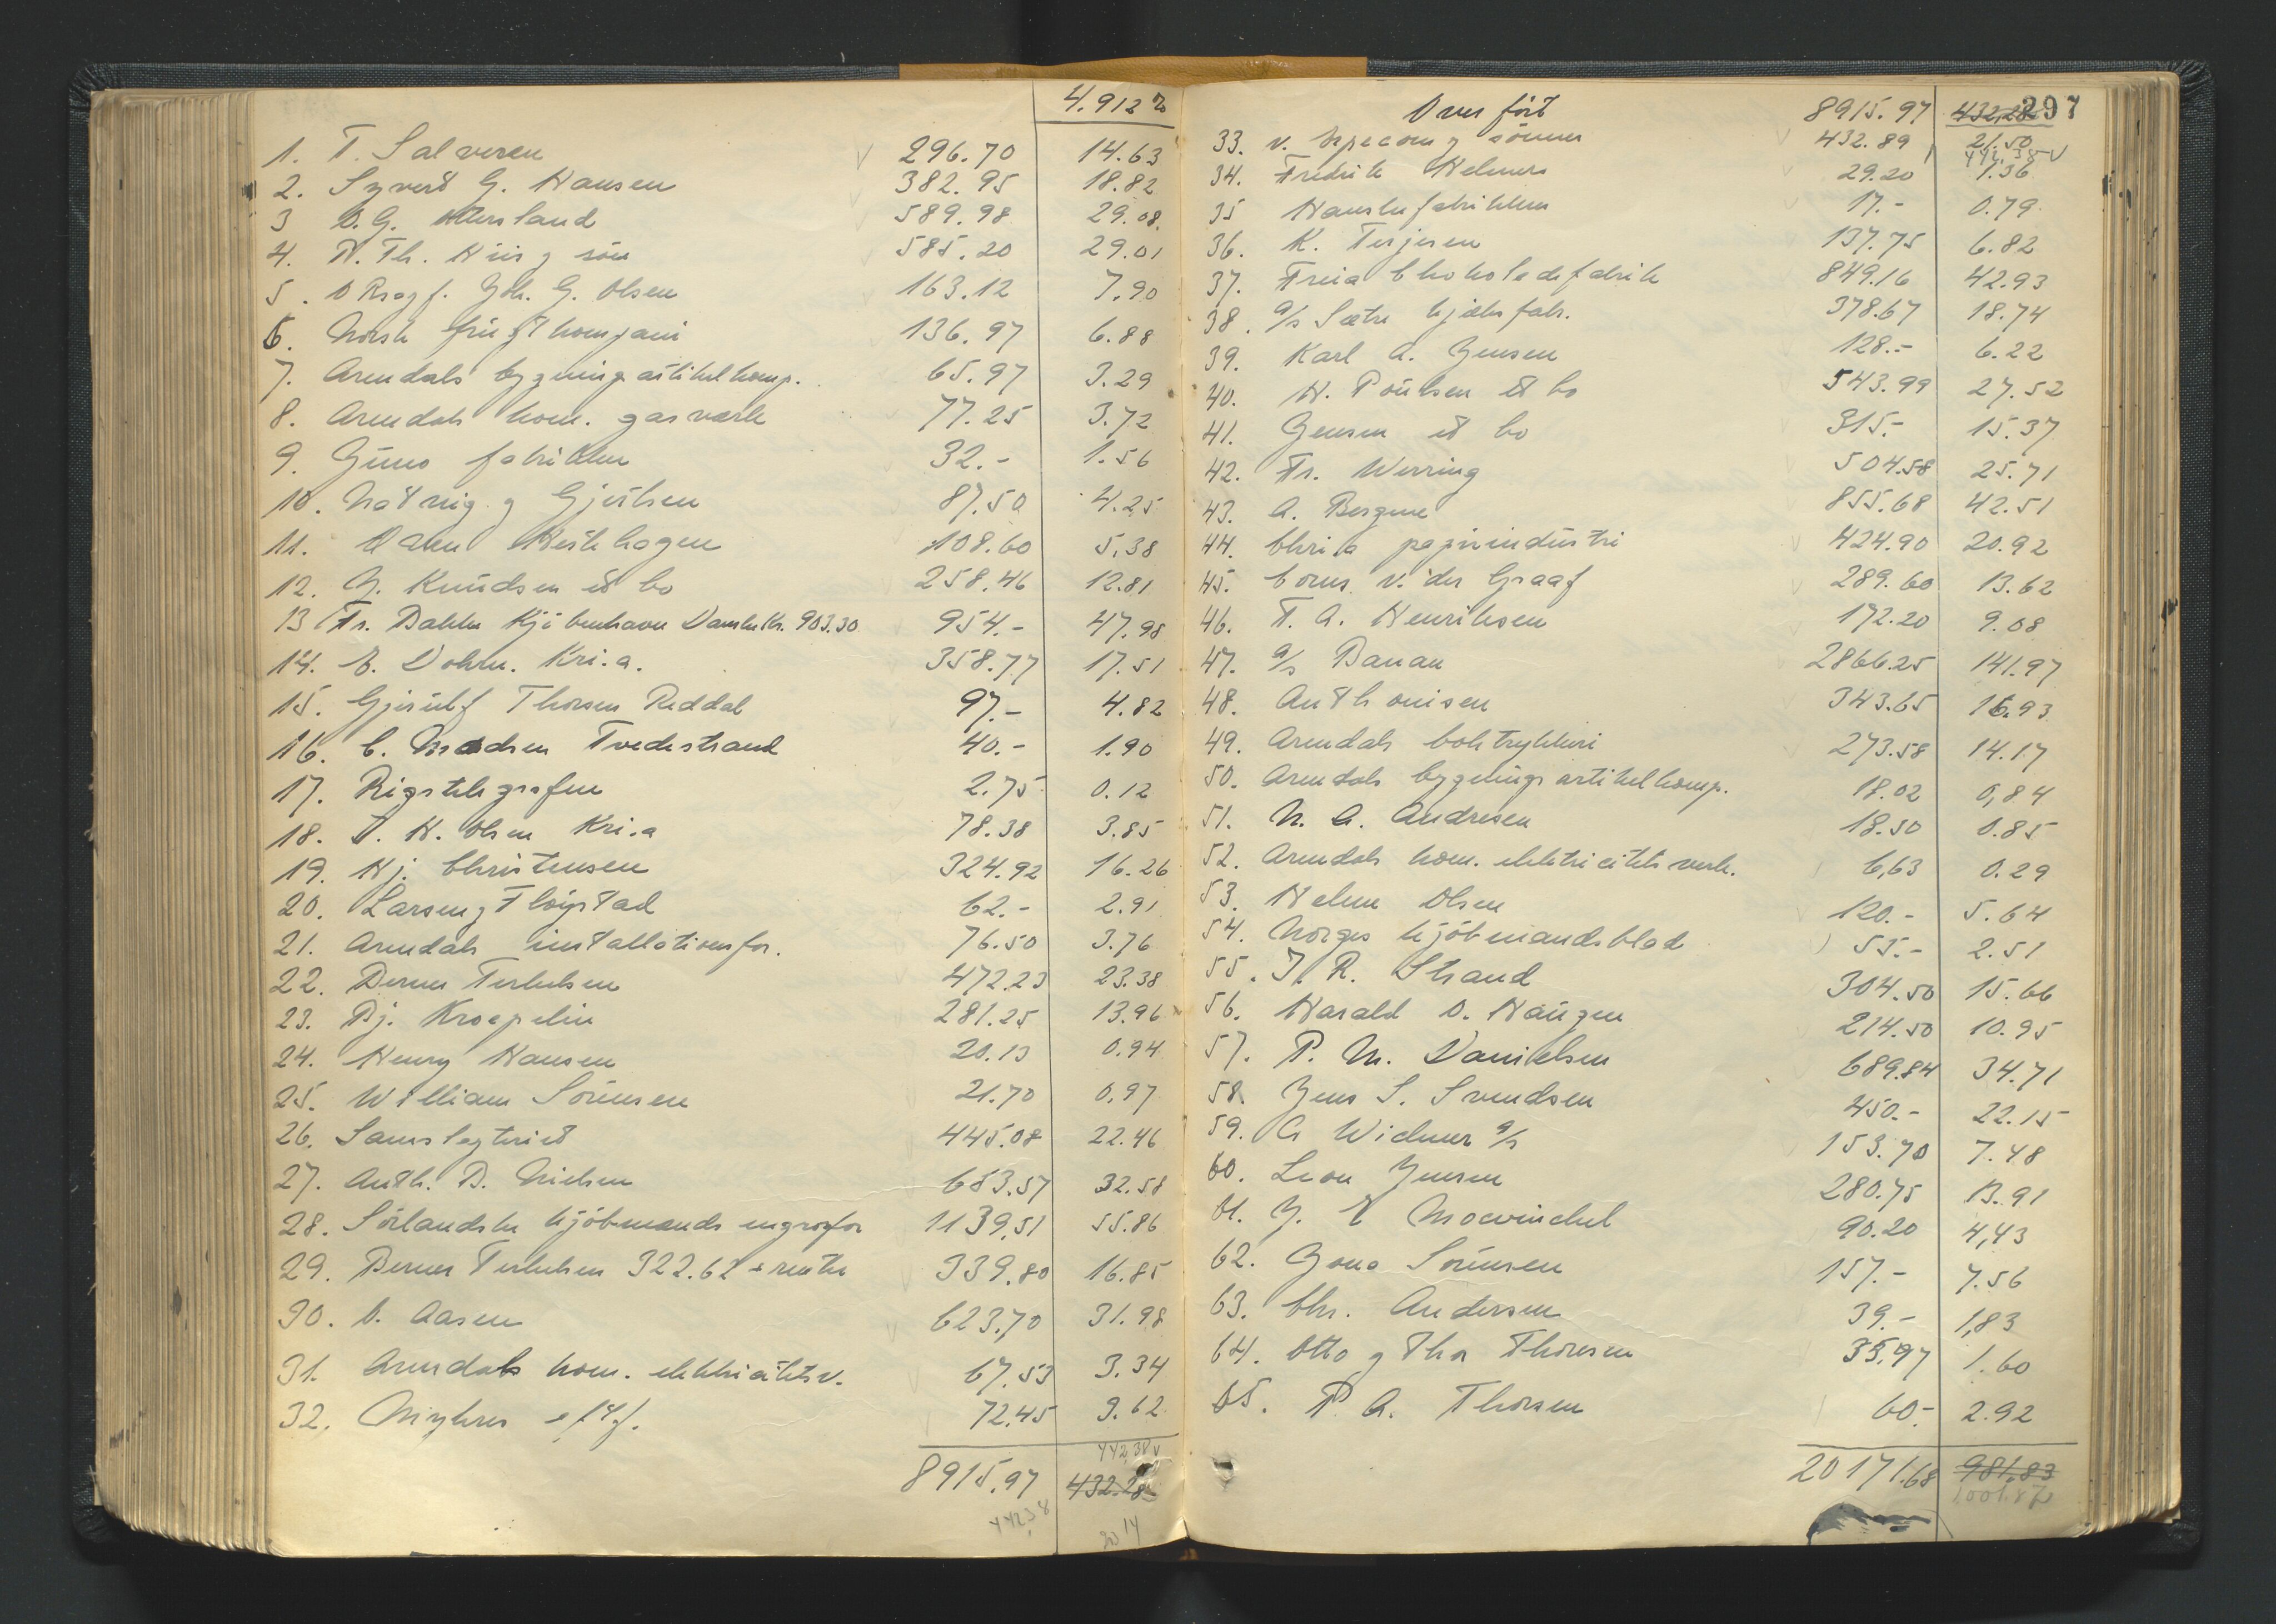 4.912 %
1. T. Salvesen 296.70 14.63
2. Syvert G. Hansen 382.95 18.82
3 O.G. Ottersland 589.98 29.08.
4. N. Th. Niis g søn 585.20 29.01
5. O Rsagf. Joh. G. Olsen 163.12 7.90
6. Norsk frugtkompani 136.97 6.88
7. Arendals bygningsartikelkomp. 65.97 3.29
8. Arendals kom. gasverk 77.25 3.72
9. Juno fabrikken 32.- 1.56
10. Natvig g Gjertsen 87.50 4.25
11. Hestehagen 108.60 5.38
12. J. Knudsen et co 258.46 12.81
13 Fr. Dahler Kjøbenhavn Danske Kr. 903.30 954.- 47.98
14. E. Dohm. Kri.a. 358.77 17.51
15. Gjerulf Thorsen Reddal 97.- 4.82
16. C. Madsen Tvedestrand 40.- 1.90
17. Rigstelegrafen 2.75 0.12
18. T. H. Olsen Kri.a 78.38 3.85
19. Hj. Christensen 324.92 16.26
20. Larsen g Fløistad 62.- 2.91
21. Arendals installationsfor. 76.50 3.76
22. Berner Terkelsen 472.23 23.38
23. Bj. Kroepelin 281.25 13.96
24. Henry Hansen 20.13 0.94
25. William Sørensen 21.70 0.97
26. Samslagteriet 445.08 22.46
27. Anth. B. Nielsen 653.57 32.58
28. Sørlandske kjøbmands engrosfor 1139.51 55.86
29. Berner Terkelsen 322.62 + rente 339.80 16.85
30. O. Aasen 623.70 31.98
31. Arendals kom. elektricitetsv. 67.53 3.34
32. Myhres eftf. 72.45 3.62
442,38 v
8915.97 432.28
442,38
20 14
297
Overført 8915.97 432.28
33. v. Krpecom g sønner 432.89 21.50
442,38 v
34. Fredrik Helmers 29.20 1.36
35 Hanskefabrikken 17.- 0.79
36. K. Terjesen 137.75 6.82
37. Freia Chokoladefabrik 849.16 42.93
38. A/s Sætre kjæksfabr. 378.67 18.74
39. Karl A. Jensen 128.- 6.22
40. H. Poulsen et co 543.99 27.52
41. Jensen et co 315.- 15.37
42. Fr. Werring 504.58 25.71
43. A. Bergene 855.68 42.51
44. Chri.a papirindustri 424.90 20.92
45. Corns. v. der Graaf 289.60 13.62
46. T. A. Henriksen 172.20 9.08
47. A/s Banan 2866.25 141.97
48. Anthonisen 343.65 16.93
49. Arendals boktrykkeri 273.58 14.17
50. Arendals bygningsartikelkomp. 18.02 0,84
51. N. A. Andresen 18.50 0.85
52. Arendals kom. elektricitetsverk. 6,63 0.29
53. Helene Olsen 120.- 5.64
54. Norges kjøbmandsblad 55.- 2.51
55. J. R. Strand 304.50 15.66
56. Harald O. Haugen 214.50 10.95
57. P. M. Danielsen 689.84 34.71
58. Jens S. Svendsen 450.- 22.15
59. A Widmer A/s 153.70 7.48
60. Leon Jensen 280.75 13.91
61. J. E Mowinckel 90.20 4,43
62. Jona Sørensen 157.- 7.56
63. Chr. Andersen 39.- 1,83
64. Otto g Thor Thoresen 35,97 1.60
65. P. A. Thorsen 60.- 2.92
20171.68 981.83
1001.87